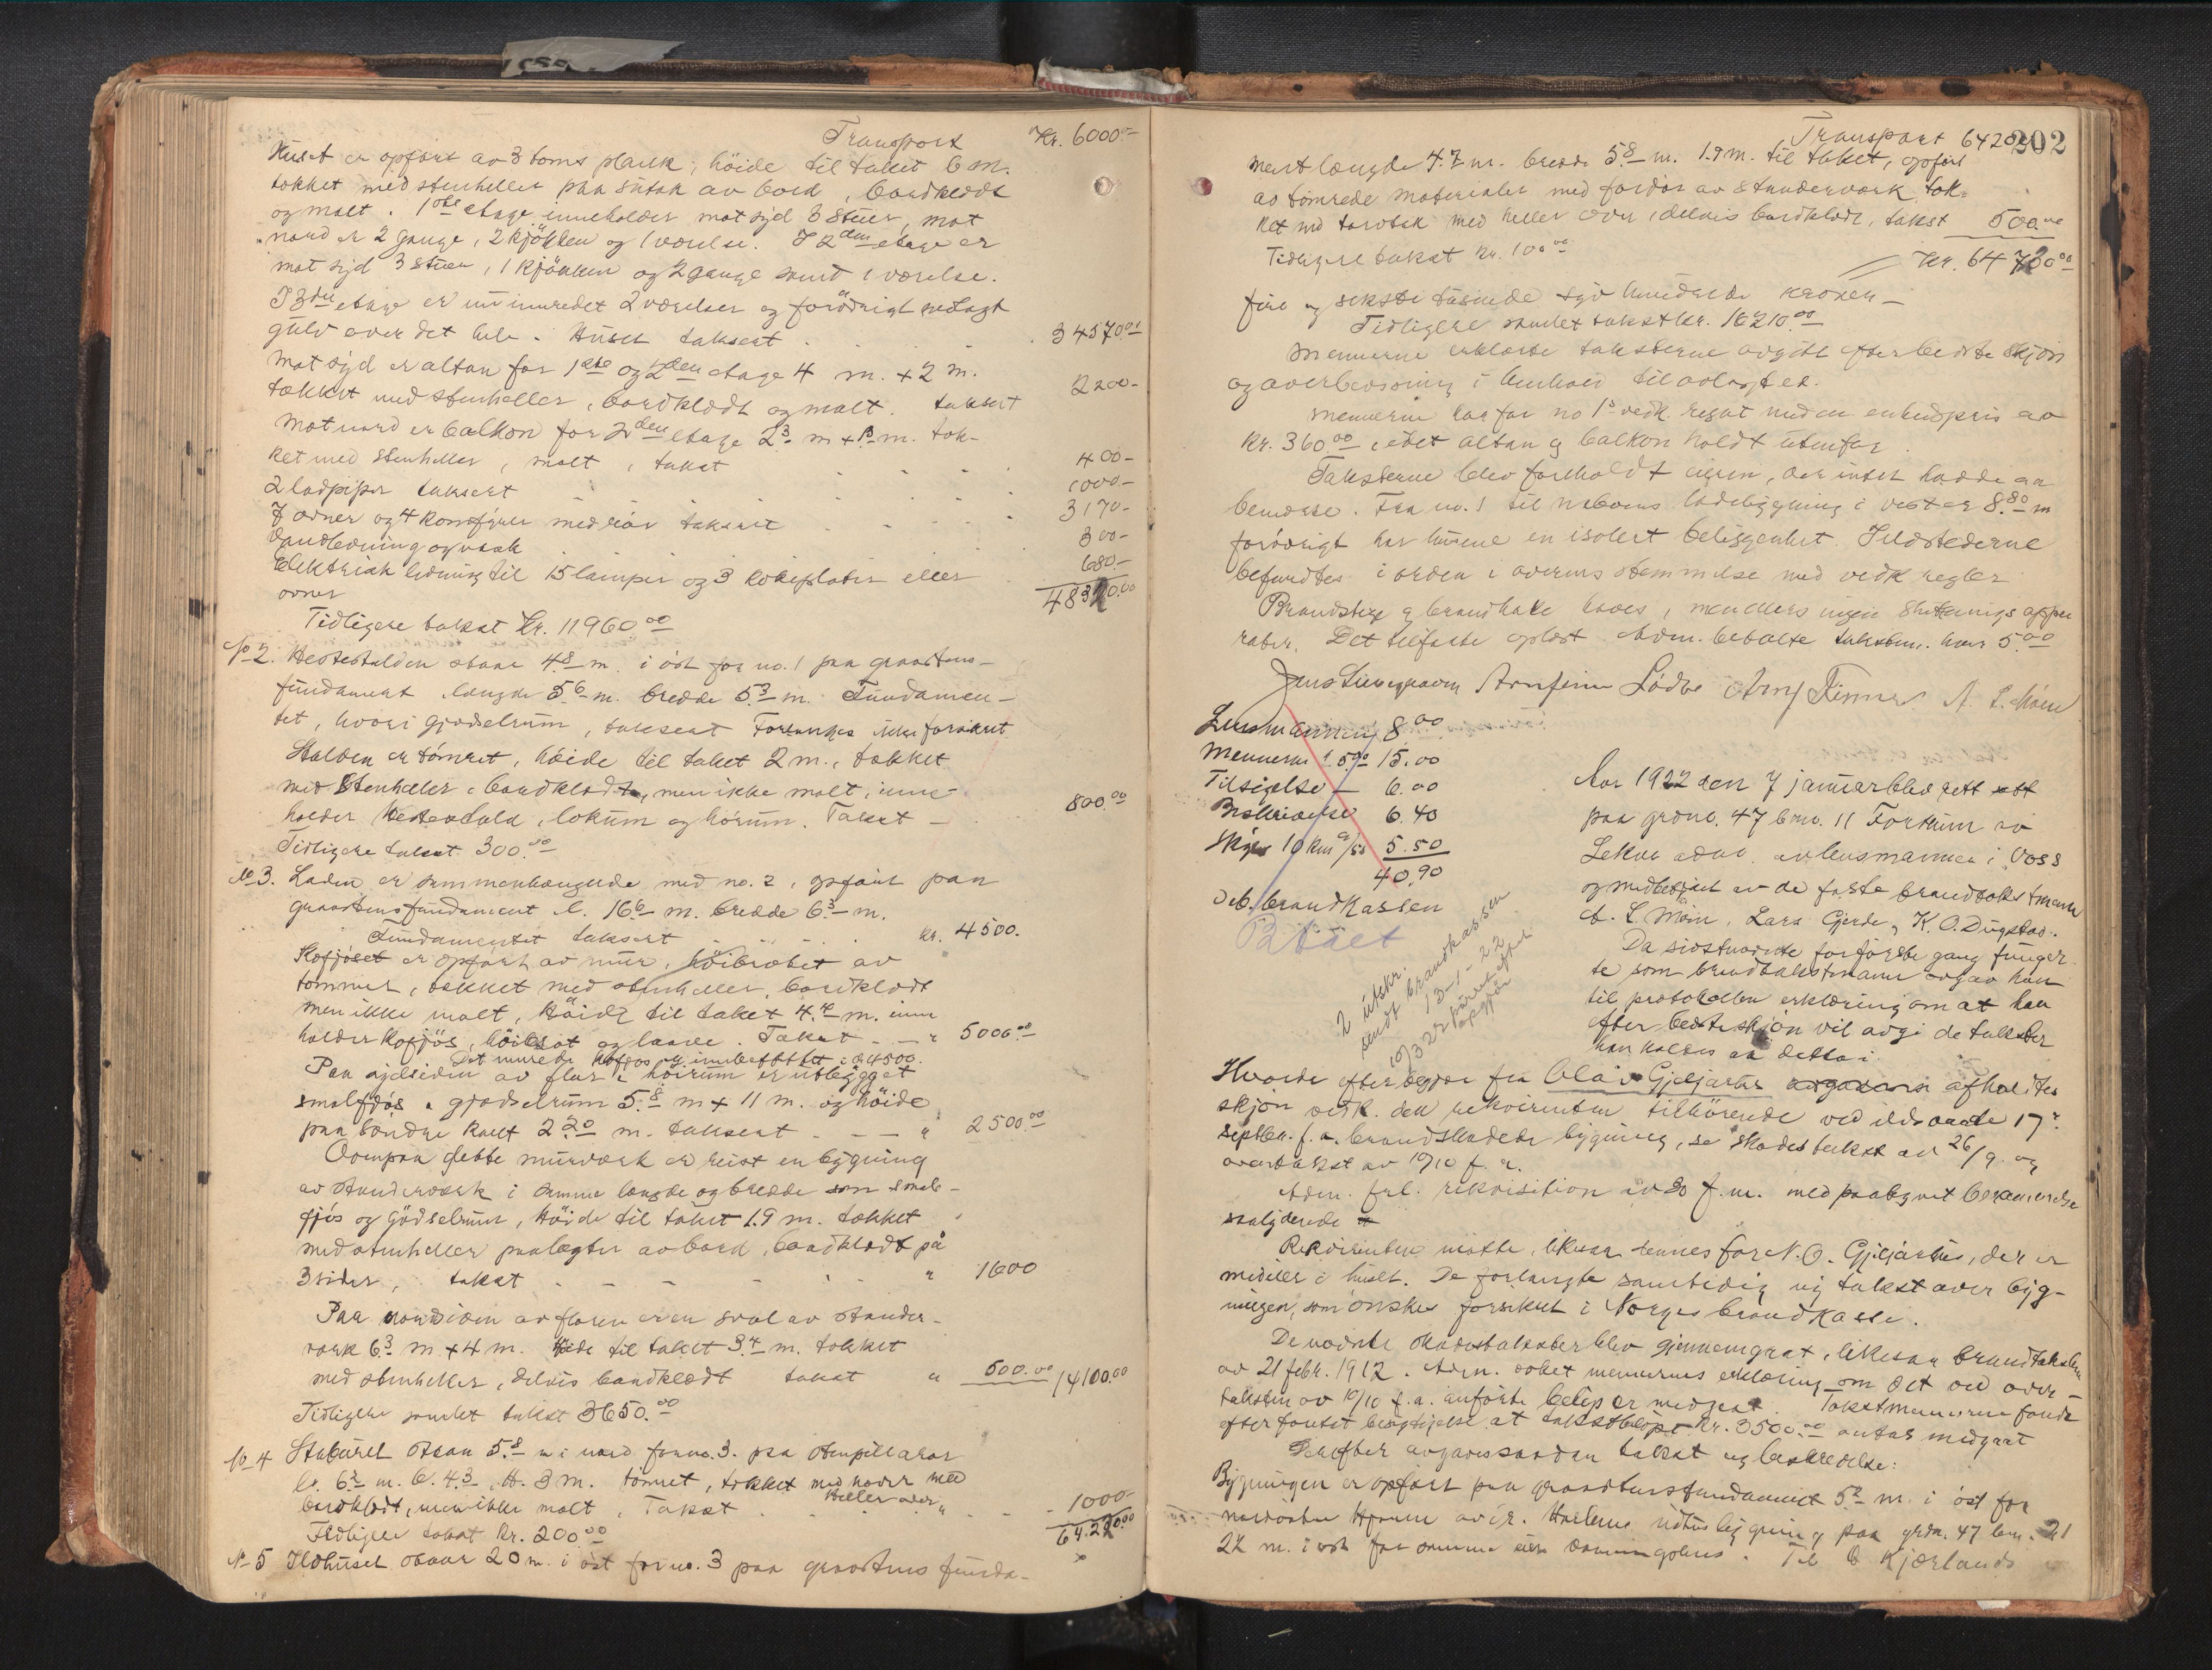 Transport Kr. 6000.-
Huset er opført av 3 toms plank, höide til taket 6 m.
tækket med stenheller paa sutak av bord, bordklædt
og malt. 1ste etage inneholder mot syd 3 stuer, mot
nord er 2 gange, 2 kjökken og 1 værelse. I 2den etage er
mot syd 3 stuer, 1 kjökken og 2 gange samt 1 værelse.
I 3die etage er uinnredet 2 værelser og forövrigt nedlagt
gulv over det hele. Huset taksert 34570.00
Mot syd er altan for 1ste og 2den etage 4 m. + 2 m.
tækket med stenheller, bordklædt og malt. taksert 2200-
Mot nord er balkon for 2den etage 2.3 m + m. tæk-
ket med stenheller, malt, takst 400-
2 ladpiper taksert 1000-
7 ovner og 4 komfyrer med rör taksert 3170-
Vandledning og vask 300-
Elektrisk ledning til 15 lamper og 3 kokeplater eller 680.-
ovner 48320.00
Tidligere takst Kr. 11960.00
No 2. Hestestalden staar 4.8 m. i öst for no. 1 paa graastens-
fundament længde 5.6 m. bredde 5.3 m. Fundamen-
tet, hvori gjødselrum, taksert Forlanges ikke forsikret
Stalden er tömret, höide til taket 2 m., tækket
med Stenheller, bordklædt, men ikke malt, inne-
holder Hestestald, lokum og hörum. Takst - 800.00
Tidligere takst 300.00
No 3. Laden er sammenhængende med no. 2, opført paa
graastensfundament l. 16.6 m. bredde 6.3 m.
Fundamentet taksert kr. 4500.
Kofjöset er opført av mur, av
tømmer, tækket med stenheller, bordklædt
men ikke malt, Höide til taket 4.4 m. inne
holder Kofjös, og laave. Takst - " 5000.00
Det murede kofjøs er innbefattet i de 4500.
Paa sydsiden av flor & höirum er utbygget
smalfjös & gjødselrum 5.8 m + 11 m. og höide
paa söndre kant 2.20 m. taksert - - " 2500.00
Ovenpaa dette murværk er reist en bygning
av stenderværk i samme længde og bredde som smale-
fjös og gjödselrum, Höide til taket 1.9 m. tækket
med stenheller paa lægter av bord, bordklædt på
3 sider, takst - - - " 1600
Paa nordsiden av floren er en sval av stender-
værk 6.3 m + 4 m. Höide til taket 3.4 m. tækket
med stenheller, delvis bordklædt takst " 500.00 14100.00
Tidligere samlet takst 3650.00
No 4 Staburet staar 5.8 m i nord for no. 3. paa stenpillarer
l. 6.2 m. b. 4.3. H. 3 m. tömret, tækket med næver med
Heller over
bordklædt, men ikke malt, Takst 1000-
Tidligere takst kr. 200.00 64.220.00
No 5 Ildhuset staar 20 m. i öst for no. 3 paa graastens funda-
Transport 6420 202
ment længde 4.7 m. bredde 5.8 m. 1.9 m. til taket, opført
av tömrede materialer med fordör av stenderværk tæk-
ket med torvtak med heller over, delvis bordklædt, takst 500.00
Tidligere takst kr. 100.00 Kr. 64720.00
fire og seksti tusinde syv hundrede kroner-
Tidligere samlet takst kr. 16210.00
Mennerne erklærte taksterne avgit efter bedste skjön
og overbevisning i henhold til avlagt ed.
Mennerne har for no 1's vedk. regnet med en enhedspris av
kr. 360.00, idet altan og balkon holdt utenfor.
Taksterne blev foreholdt eieren, der intet hadde at
bemerke. Fra no. 1 til naboens ladebygning i vest er 8.80 m
forövrigt har husene en isolert beliggenhet. Ildstederne
befundtes i orden i overensstemmelse med vedk regler
Brandstige og brandhake haves, men ellers ingen slukningsappa
rater. Det tilførte oplæst. Adm. betalte takstm. hver 5.00
Jens Arnfinn Lödve A. L. Møen
Lensmannen 8.00
Mennerne á 5.00 15.00
Tilsigelse 6.00
Beskrivelse 6.40
Skyss 10 km á/55 5.50
40.90
Deb. brandkassen
Betalt
2 utskr.
sendt brandkassen
13-1-22
Aar 1922 den 7 januar blev rett
paa grdno. 47 brno. 11 Fortun av
Lekve adm. av lensmannen i Voss
og medbetjent av de faste brandtakstmænd
A. L. Møen, Lars Gjerde, K. O. Dugstad.
Da sidstnævnte for første gang funger-
te som brandtakstmann avgav han
til protokollen erklæring om at han
efter bedste skjön vil avgi de takster
han kaldes at delta i.
Hvorda efter begjær fra Olav Gjeljarhus afholdtes
skjön vedk. den rekvirenten tilhörende ved ildsvaade 17.
septbr. f. a. brandskadede bygning, se skadestakst av 26/9. og
overtakst av 19/10 f. a.
Adm. frl. rekvisition av 30 f. m. med paategnet berammelse
saalydende
Rekvirenten mötte, likesaa hennes far N. O. Gjeljarhus, der er
medeier i huset. De forlangte samtidig ny takst over byg-
ningen, som önskes forsikret i Norges brandkasse.
De nævnte skadestakster blev gjennemgaat, likesaa brandtaksten
av 21 febr. 1912. Adm. vobet mennernes erklæring om det ved over-
taksten av 19/10 f. a. anförte belöp er medgaat. Takstmennerne fandt
efter foretat besigtigelse at takstbelöpet kr. 3500.00 antas medgaat
Derefter avgaves saadan takst og beskrivelse:
Bygningen er opført paa graastensfundament 5.2 m. i öst for
nordöstre hjørne av uthusbygning paa grdn. 47 brn. 21
22 m. i vest for samme eiers vaaningshus. Til Kjærlands